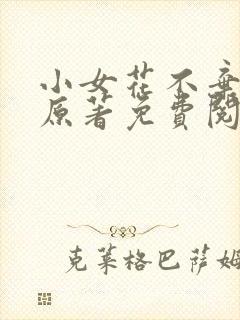 小女花不弃
原著免费阅
克莱格巴萨姆